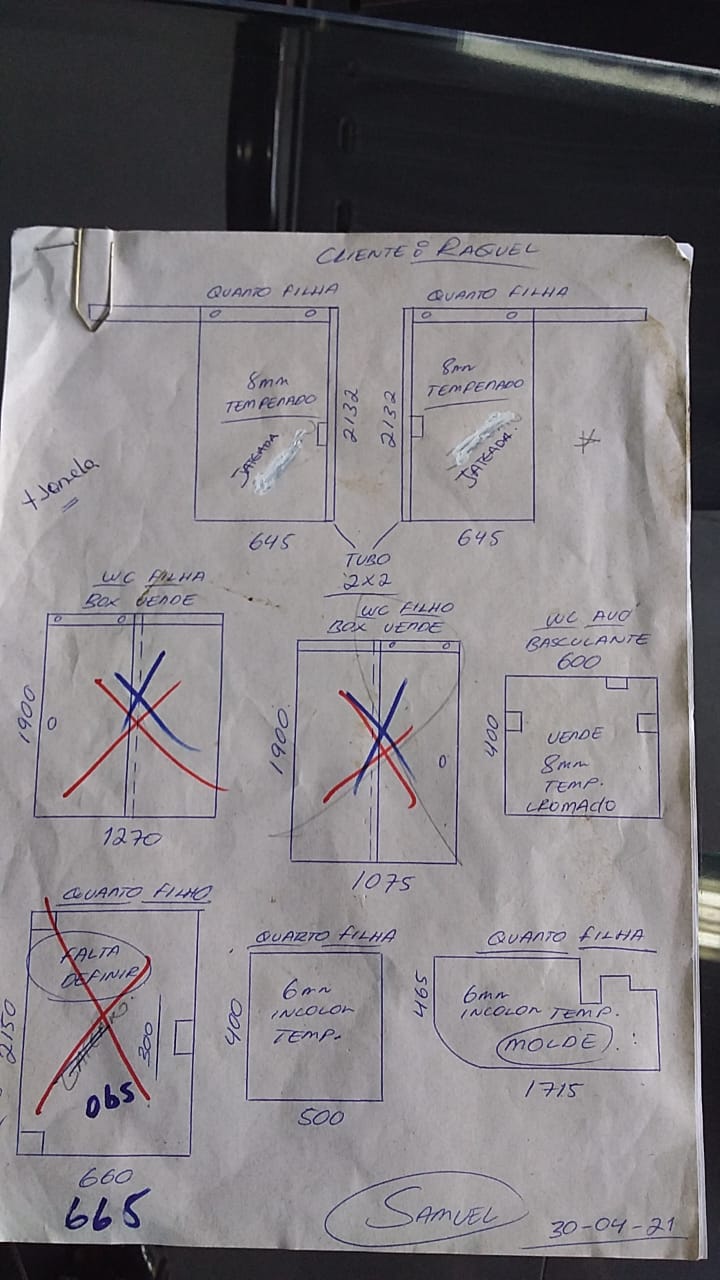 CLIENTE: RAQUEL
QUARTO FILHA
QUARTO FILHA
8mm
TEMPERADO
JATEADA
2132
645
8mm
TEMPERADO
JATEADA.
2132
645
TUBO
2x2
+ Janela
WC FILHA
BOX VERDE
1900
1270
WC FILHO
BOX VERDE
1900
1075
WC AVÓ
BASCULANTE
600
400
VERDE
8mm
TEMP.
CROMADO
QUARTO FILHO
FALTA
DEFINIR
2150
300
590
660
665
QUARTO FILHA
400
6mm
INCOLOR
TEMP.
500
QUARTO FILHA
465
6mm
INCOLOR TEMP.
MOLDE
1715
SAMUEL
30-04-21